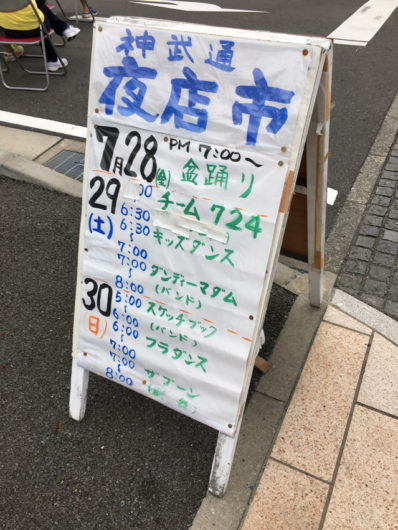 神武通
夜店市
7月28(金) PM 7:00〜 盆踊り
29(土) チーム724
6:30
6:30 キッズダンス
〜
7:00
7:00 ダンディーマダム
〜 (バンド)
8:00
30(日) 5:00 スケッチブック
〜 (バンド)
6:00
6:00 フラダンス
〜
7:00
7:00
〜
8:00